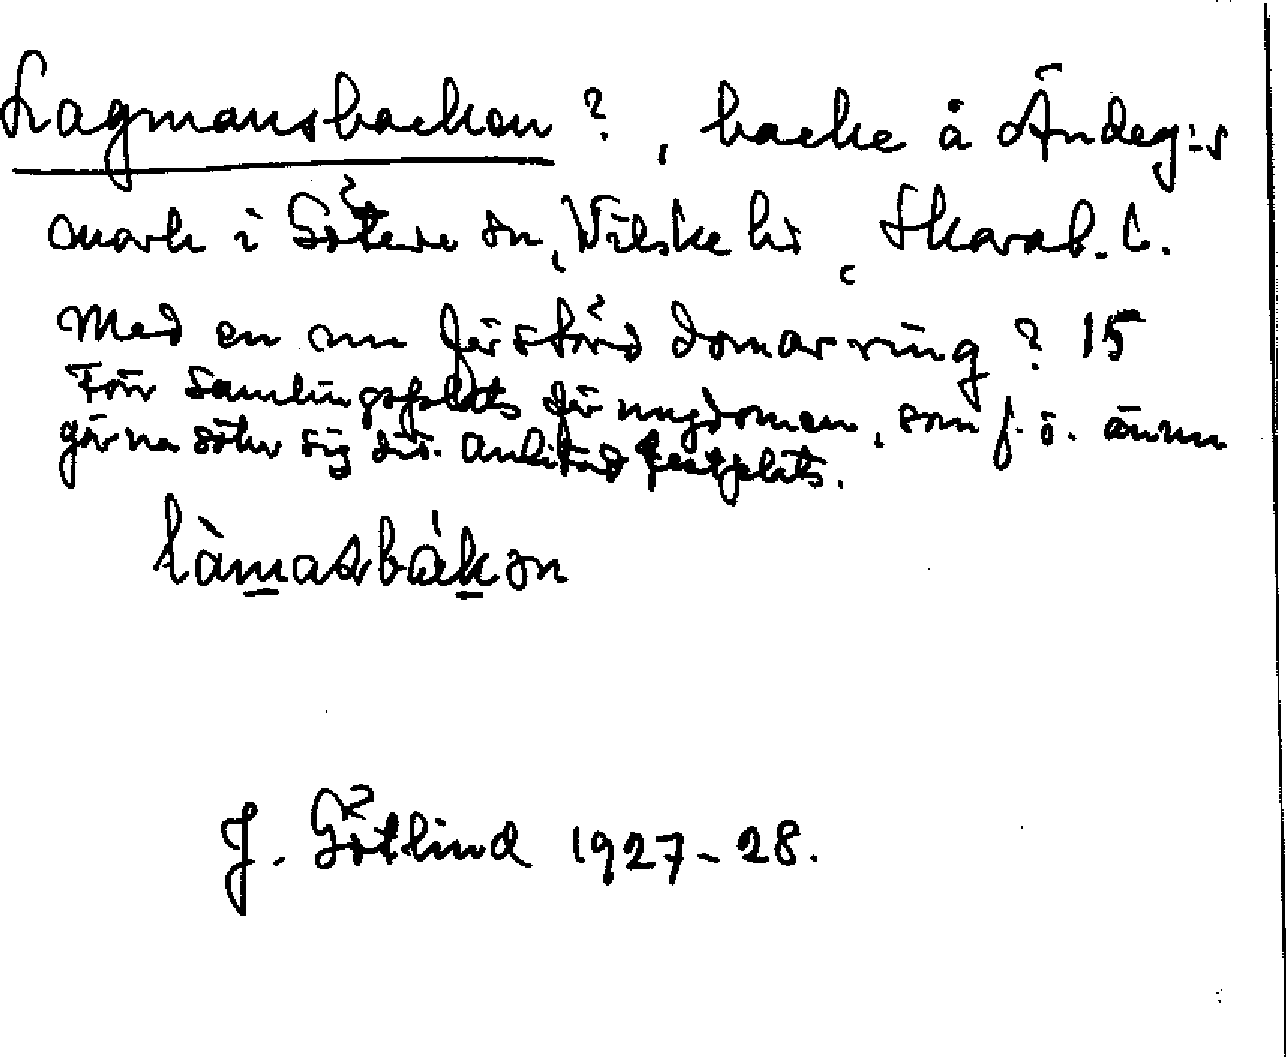 Lagmansbacken ?, backe å Ändeg:s
mark i Sörene sn, Vilske hd, Skarab. l.
Med en nu förstörd domarring ? 15
Förr samlingsplats för ungdomen, som f. ö. ännu
gärna söker sig dit. Anlitad festplats.
làmasbákən
J. Götlind 1927-28.